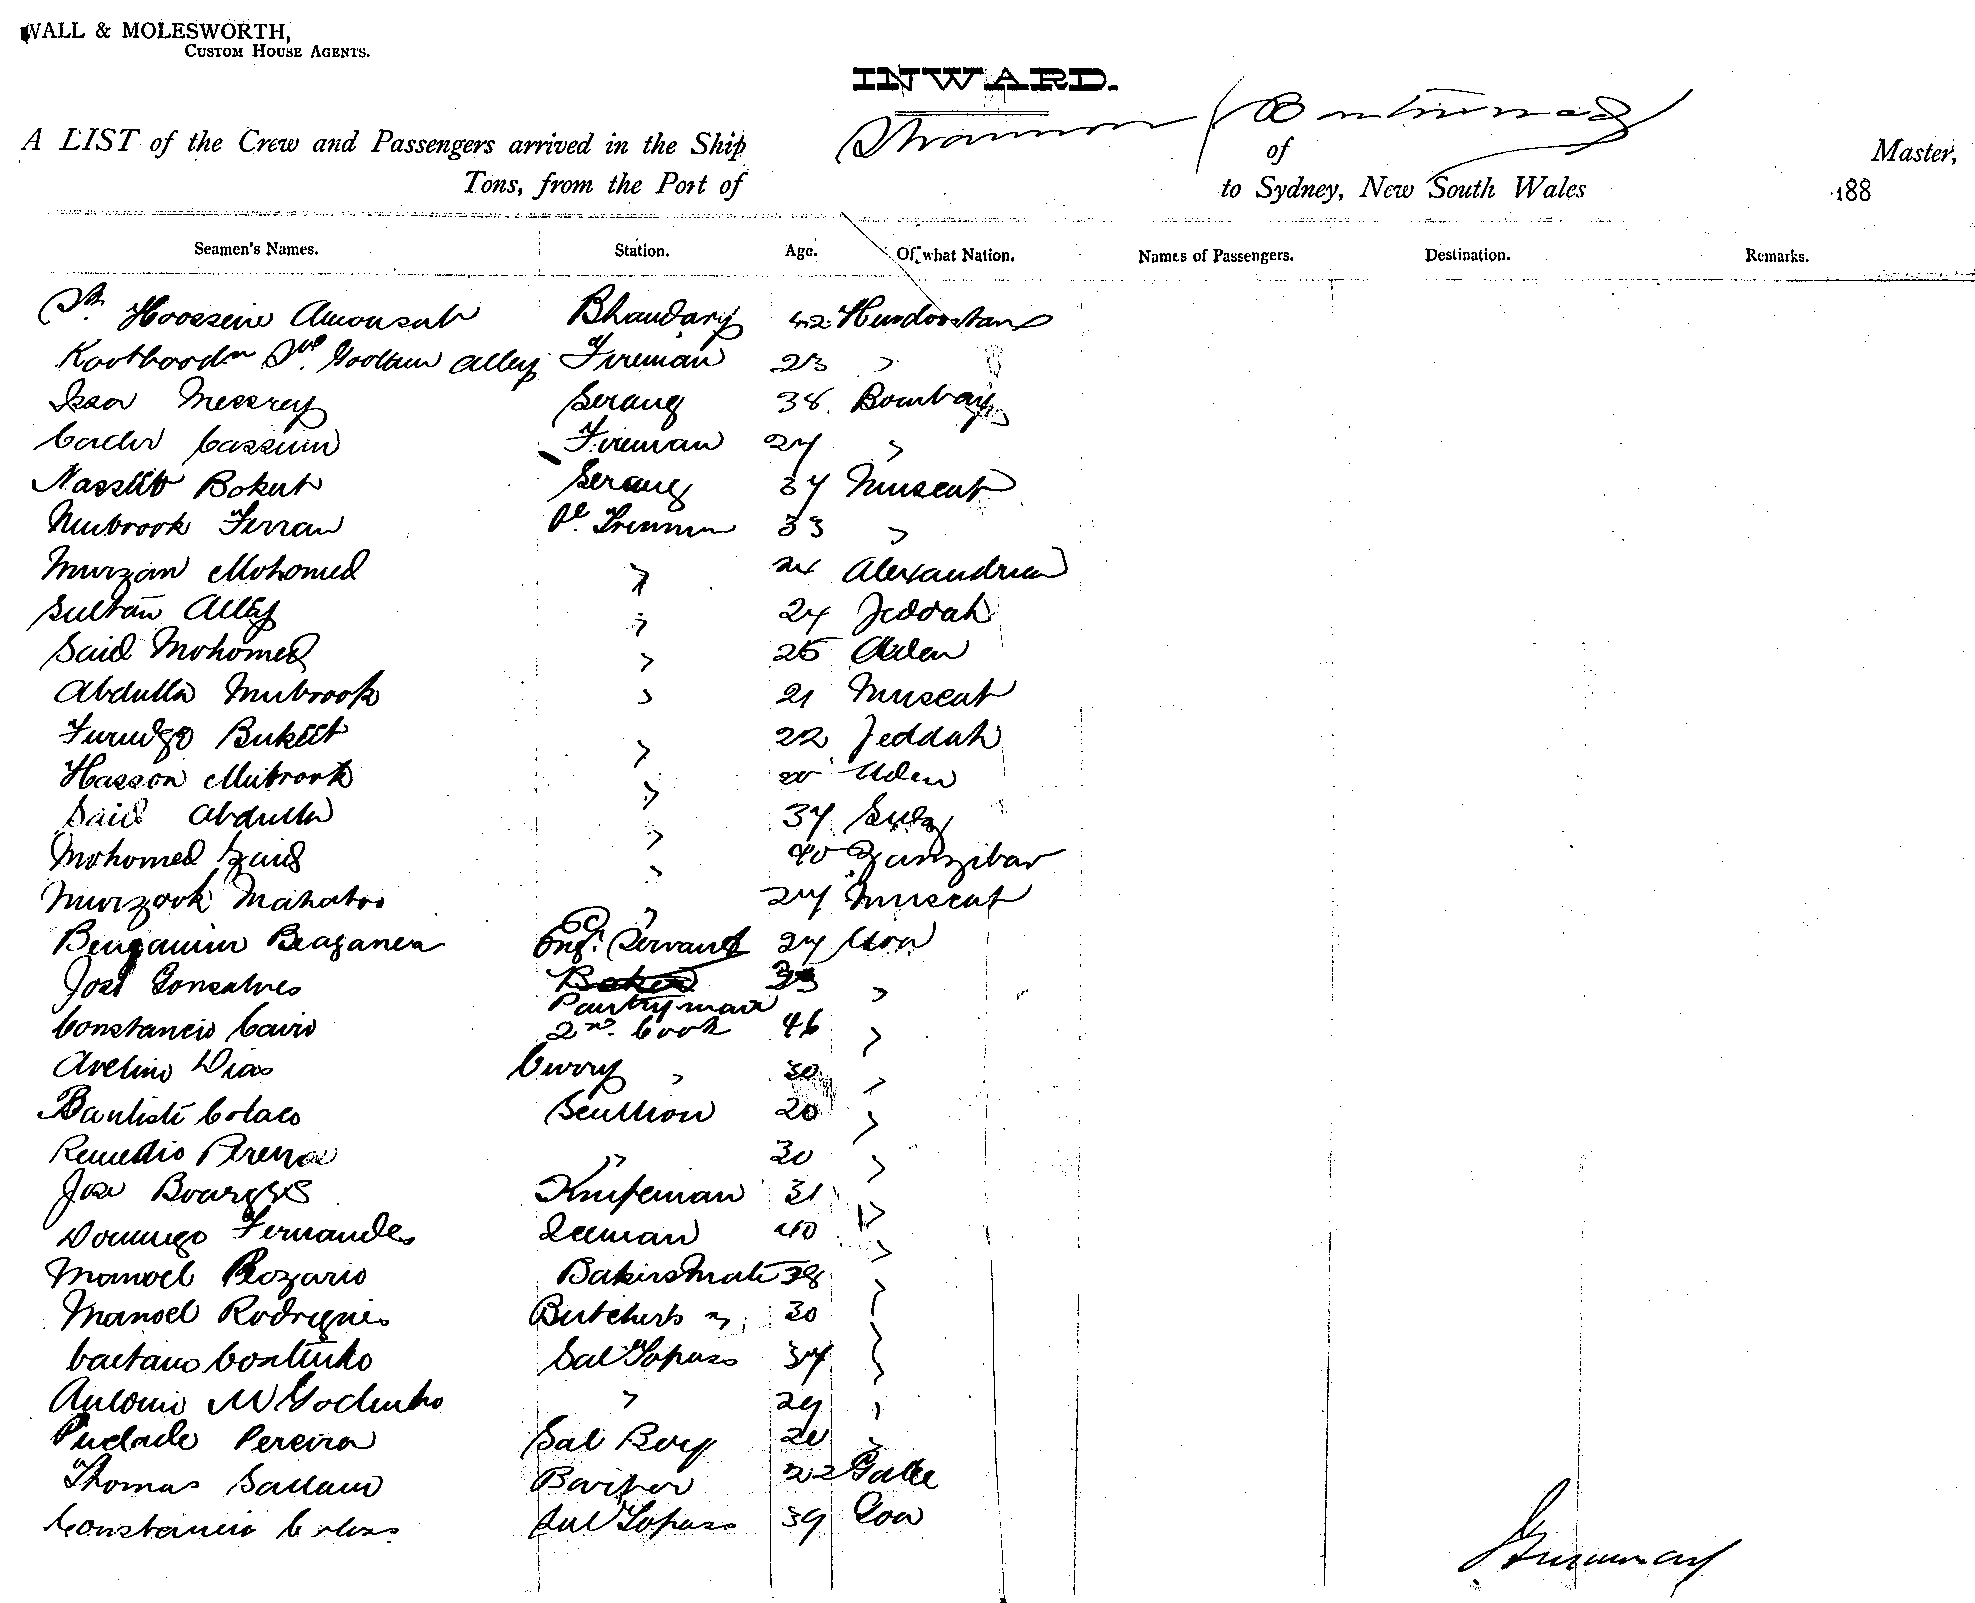 WALL & MOLESWORTH,
CUSTOM HOUSE AGENTS.
INWARD.
Shannon (Continued)
A LIST of the Crew and Passengers arrived in the Ship of Master,
Tons, from the Port of to Sydney, New South Wales 188
Seamen's Names. Station. Age. Of what Nation. Names of Passengers. Destination. Remarks.
Sk. Hoossein Bhandary 42 Hindoostan
Alley Fireman 23 "
Issa Serang 38 Bombay
Cader Cassum Fireman 27 "
Nassib Bokut Serang 37 Muscat
Mubrook Ferran 33 "
Murzan Mohomed " 24 Alexandria
Sultan Alley " 24 Jeddah
Said Mohomed " 25 Aden
Abdulla Mubrook " 21 Muscat
" 22 Jeddah
Hasson Mubrook " 20 Aden
Said Abdulla " 37 Suez
Mohomed Zaid " 40 Zanzibar
Murzook " 27 Muscat
Benjamin Braganza Engr. Servant 27 Goa
José Gonsalves Pantryman "
Constancio 2nd. Cook 46 "
Avelino Dias Curry " 30 "
Bautiste Colaco Scullion 20 "
Remedio Pereira " 30 "
Jose Knifeman 31 "
Domingo Fernandes Iceman 40 "
Manoel Rozario Bakers Mate 38 "
Manoel Rodrigues Butchers " 30 "
Caetano Sal Topass 37 "
Antonio M Godinho " 29 "
Piedade Pereira Sal Boy 20 "
Thomas Barber 22 Galle
Constancio Sal Topass 39 Goa